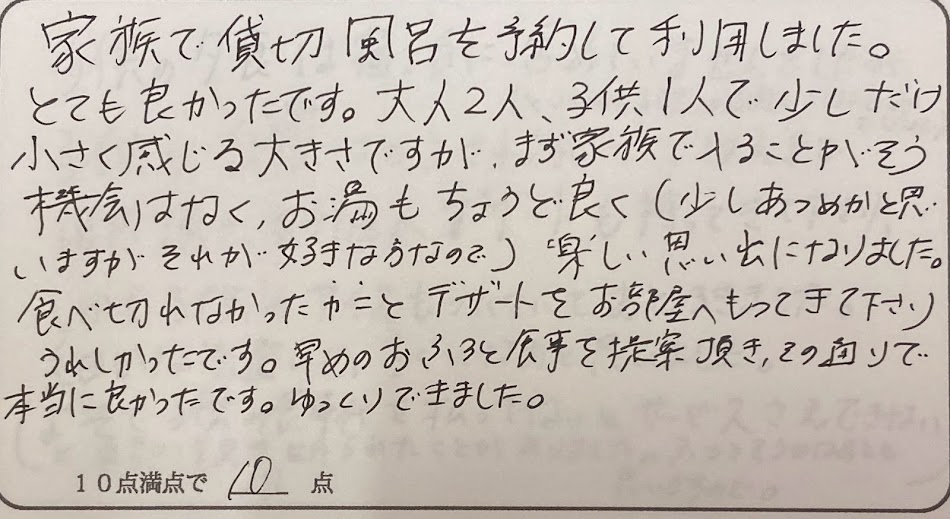 家族で貸切風呂を予約して利用しました。
とても良かったです。大人2人、子供1人で少しだけ
小さく感じる大きさですが、まず家族で入ることがそう
機会はなく、お湯もちょうど良く(少しあつめかと思
いますがそれが好きな方なので)楽しい思い出になりました。
食べ切れなかったカニとデザートをお部屋へもってきて下さり
うれしかったです。早めのおふろと食事を提案頂き、その通りで
本当に良かったです。ゆっくりできました。
10点満点で 10 点